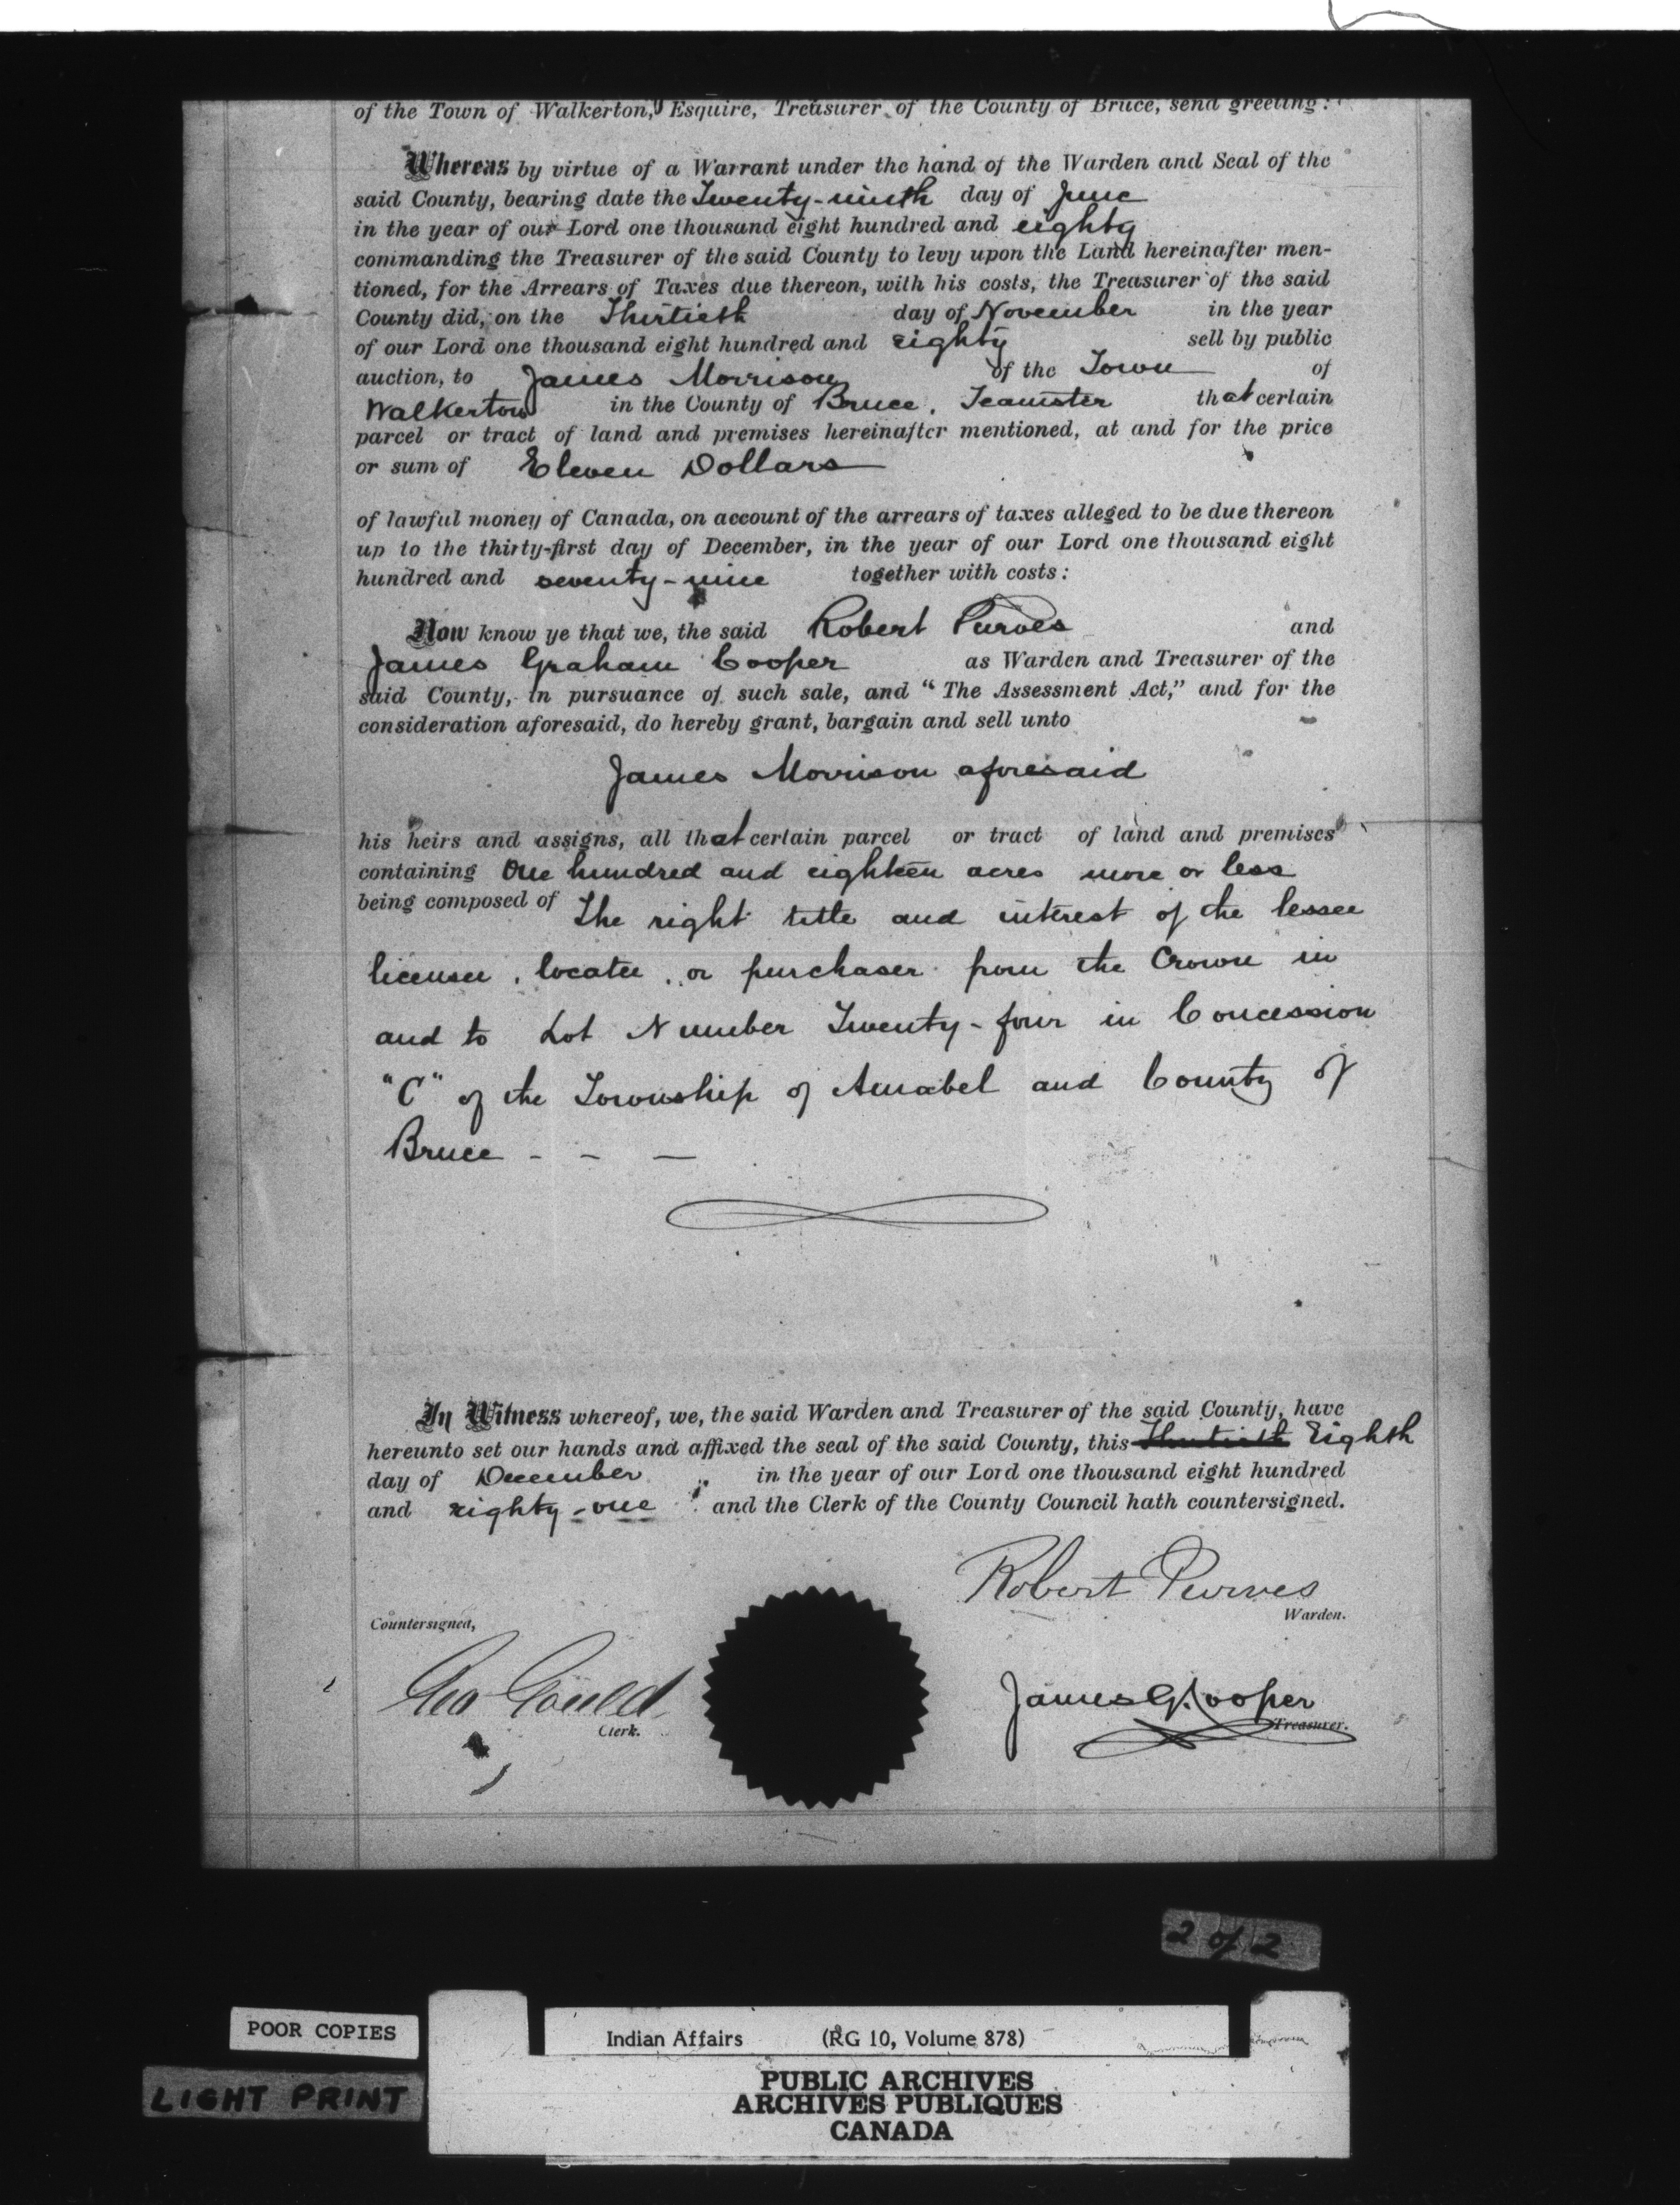 of the Town of Walkerton, Esquire, Treasurer of the County of Bruce, send greeting:
Whereas by virtue of a Warrant under the hand of the Warden and Seal of the
said County, bearing date the Twenty-ninth day of June
in the year of our Lord one thousand eight hundred and eighty
commanding the Treasurer of the said County to levy upon the Land hereinafter men-
tioned, for the Arrears of Taxes due thereon, with his costs, the Treasurer of the said
County did, on the Thirtieth day of November in the year
of our Lord one thousand eight hundred and eighty sell by public
auction, to James Morrison of the Town of
Walkerton in the County of Bruce, Teamster that certain
parcel or tract of land and premises hereinafter mentioned, at and for the price
or sum of Eleven Dollars
of lawful money of Canada, on account of the arrears of taxes alleged to be due thereon
up to the thirty-first day of December, in the year of our Lord one thousand eight
hundred and seventy-nine together with costs:
Now know ye that we, the said Robert Purves and
James Graham Cooper as Warden and Treasurer of the
said County, in pursuance of such sale, and "The Assessment Act," and for the
consideration aforesaid, do hereby grant, bargain and sell unto
James Morrison aforesaid
his heirs and assigns, all that certain parcel or tract of land and premises
containing One hundred and eighteen acres more or less
being composed of The right title and interest of the lessee
licensee, locatee, or purchaser from the Crown in
and to Lot Number Twenty-four in Concession
"C" of the Township of Amabel and County of
Bruce - - —
In Witness whereof, we, the said Warden and Treasurer of the said County, have
hereunto set our hands and affixed the seal of the said County, this Thirtieth Eighth
day of December in the year of our Lord one thousand eight hundred
and eighty-one and the Clerk of the County Council hath countersigned.
Robert Purves
Warden.
Countersigned,
Geo Gould
Clerk.
James G. Cooper
Treasurer.
2 of 2
POOR COPIES
LIGHT PRINT
Indian Affairs (RG 10, Volume 878)
PUBLIC ARCHIVES
ARCHIVES PUBLIQUES
CANADA